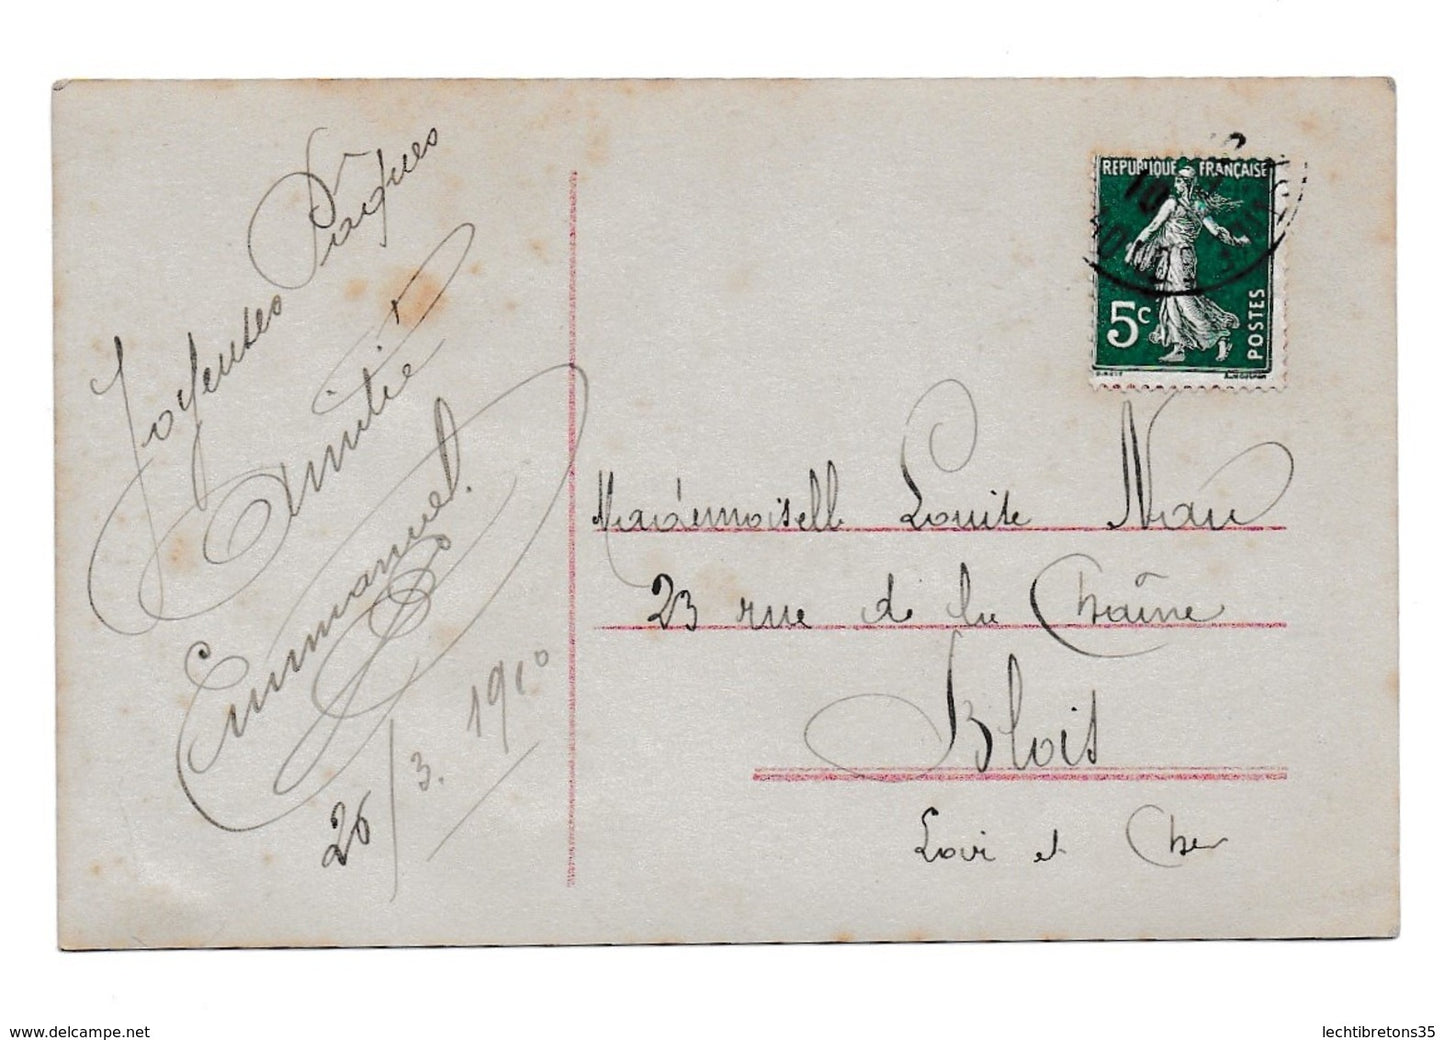 Joyeuses Pâques
Amitié
Emmanuel.
26/3. 1910
REPUBLIQUE FRANÇAISE
5c
POSTES
Mademoiselle Louise Nau
23 rue de la Chaîne
Blois
Loir et Cher
www.delcampe.net
lechtibretons35